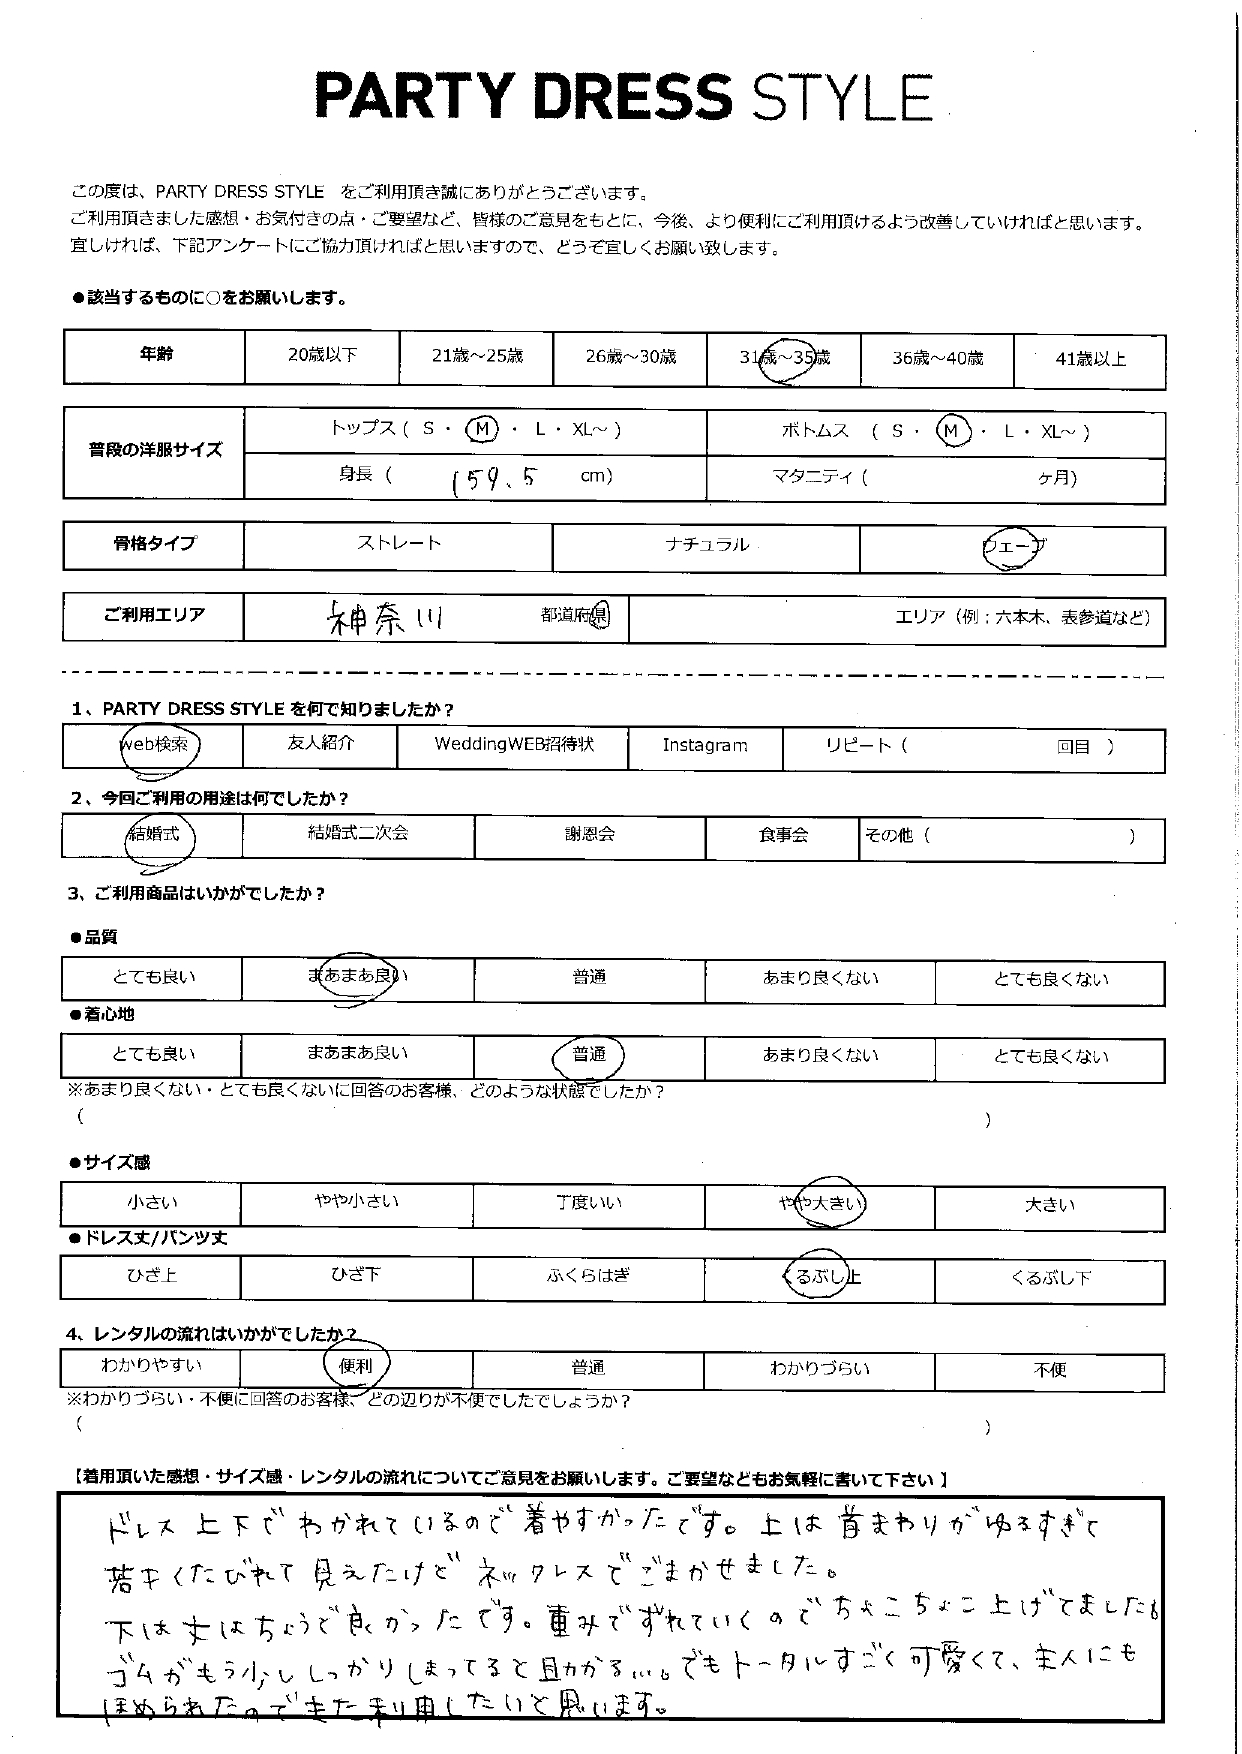 PARTY DRESS STYLE
この度は、PARTY DRESS STYLE をご利用頂き誠にありがとうございます。
ご利用頂きました感想・お気付きの点・ご要望など、皆様のご意見をもとに、今後、より便利にご利用頂けるよう改善していければと思います。
宜しければ、下記アンケートにご協力頂ければと思いますので、どうぞ宜しくお願い致します。
●該当するものに○をお願いします。
年齢 20歳以下 21歳～25歳 26歳～30歳 31歳～35歳 36歳～40歳 41歳以上
普段の洋服サイズ トップス ( S ・ M ・ L ・ XL～ ) ボトムス ( S ・ M ・ L ・ XL～ )
身長 ( 159.5 cm) マタニティ ( ヶ月)
骨格タイプ ストレート ナチュラル ウェーブ
ご利用エリア 神奈川 都道府県 エリア (例；六本木、表参道など)
1、PARTY DRESS STYLE を何で知りましたか？
web検索 友人紹介 WeddingWEB招待状 Instagram リピート ( 回目 )
2、今回ご利用の用途は何でしたか？
結婚式 結婚式二次会 謝恩会 食事会 その他 ( )
3、ご利用商品はいかがでしたか？
●品質
とても良い まあまあ良い 普通 あまり良くない とても良くない
●着心地
とても良い まあまあ良い 普通 あまり良くない とても良くない
※あまり良くない・とても良くないに回答のお客様、どのような状態でしたか？
( )
●サイズ感
小さい やや小さい 丁度いい やや大きい 大きい
●ドレス丈/パンツ丈
ひざ上 ひざ下 ふくらはぎ くるぶし上 くるぶし下
4、レンタルの流れはいかがでしたか？
わかりやすい 便利 普通 わかりづらい 不便
※わかりづらい・不便に回答のお客様、どの辺りが不便でしたでしょうか？
( )
【着用頂いた感想・サイズ感・レンタルの流れについてご意見をお願いします。ご要望などもお気軽に書いて下さい 】
ドレス上下でわかれているので着やすかったです。上は首まわりがゆるすぎて
若干くたびれて見えたけどネックレスでごまかせました。
下は丈はちょうで良かったです。重みでずれていくのでちょこちょこ上げてました。
ゴムがもう少ししっかりしまってると助かる…。でもトータルすごく可愛くて、主人にも
ほめられたのでまた利用したいと思います。